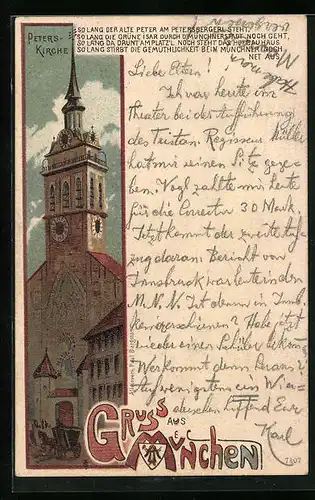 PETERS-
KIRCHE
SO LANG DER ALTE PETER AM PETERSBERGERL STEHT,
SO LANG DIE GRÜNE ISAR DURCH D'MÜNCHNERSTADT NOCH GEHT,
SO LANG DA DRUNT AM PLATZ'L NOCH STEHT DAS HOFBRÄUHAUS
SO LANG STIRBT DIE GEMÜTHLICHKEIT BEIM MÜNCHNER NOCH
NET AUS.
Liebe Eltern!
Ich war heute im
Theater bei der Aufführung
des Tristan. Regisseur Müller
hat mir seinen Sitz gege-
ben. Vogl zahlte mir heute
für die Correctur 30 Mark.
Jetzt kommt der zweite Auf-
zug daran. Bericht von
Innsbruck war heute in den
M.N.N. Ist ebenso in Inns-
erschienen? Habe jetzt
wieder einen Schüler bekom-
Wer kommt denn
Auf wenigstens ein Wie-
dersehen hoffend Euer
Karl
GRUSS AUS
MÜNCHEN
7407